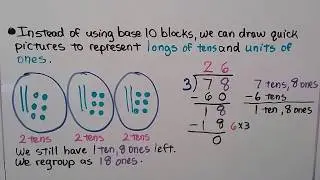 • Instead of using base 10 blocks, we can draw quick
pictures to represent longs of tens and units of
ones.
26
3)78
-60
18
-18 6x3
0
7 tens, 8 ones
-6 tens
1 ten, 8 ones
2 tens 2 tens 2 tens
We still have 1 ten, 8 ones left.
We regroup as 18 ones.